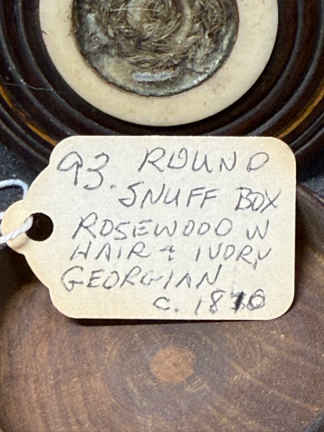 93. ROUND
SNUFF BOX
ROSEWOOD W
HAIR + IVORY
GEORGIAN
c. 1810